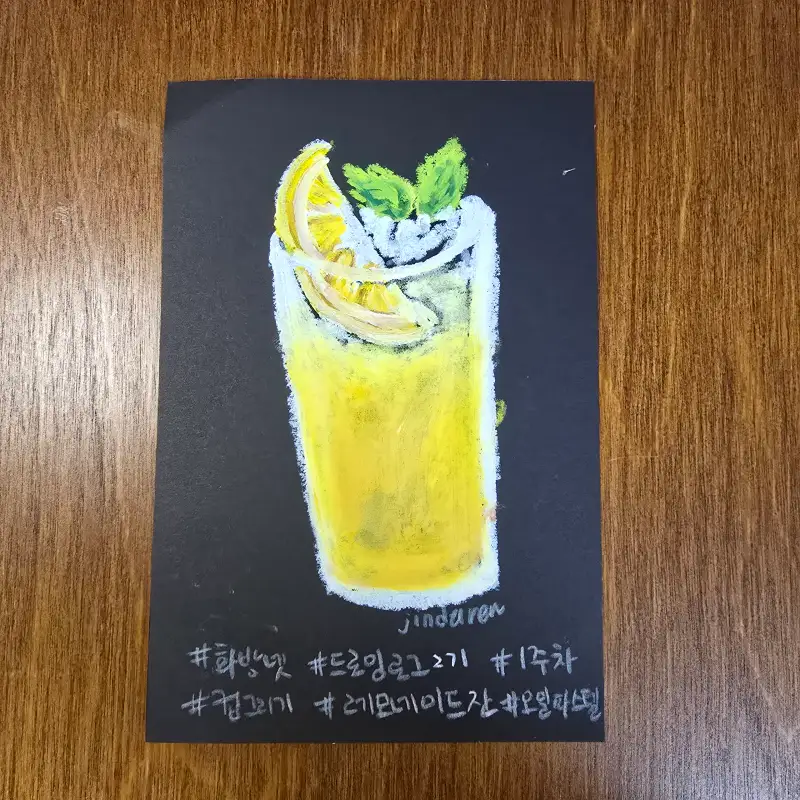 jindaren
#화방넷 #드로잉로그2기 #1주차
#컵그리기 #레모네이드잔 #오일파스텔